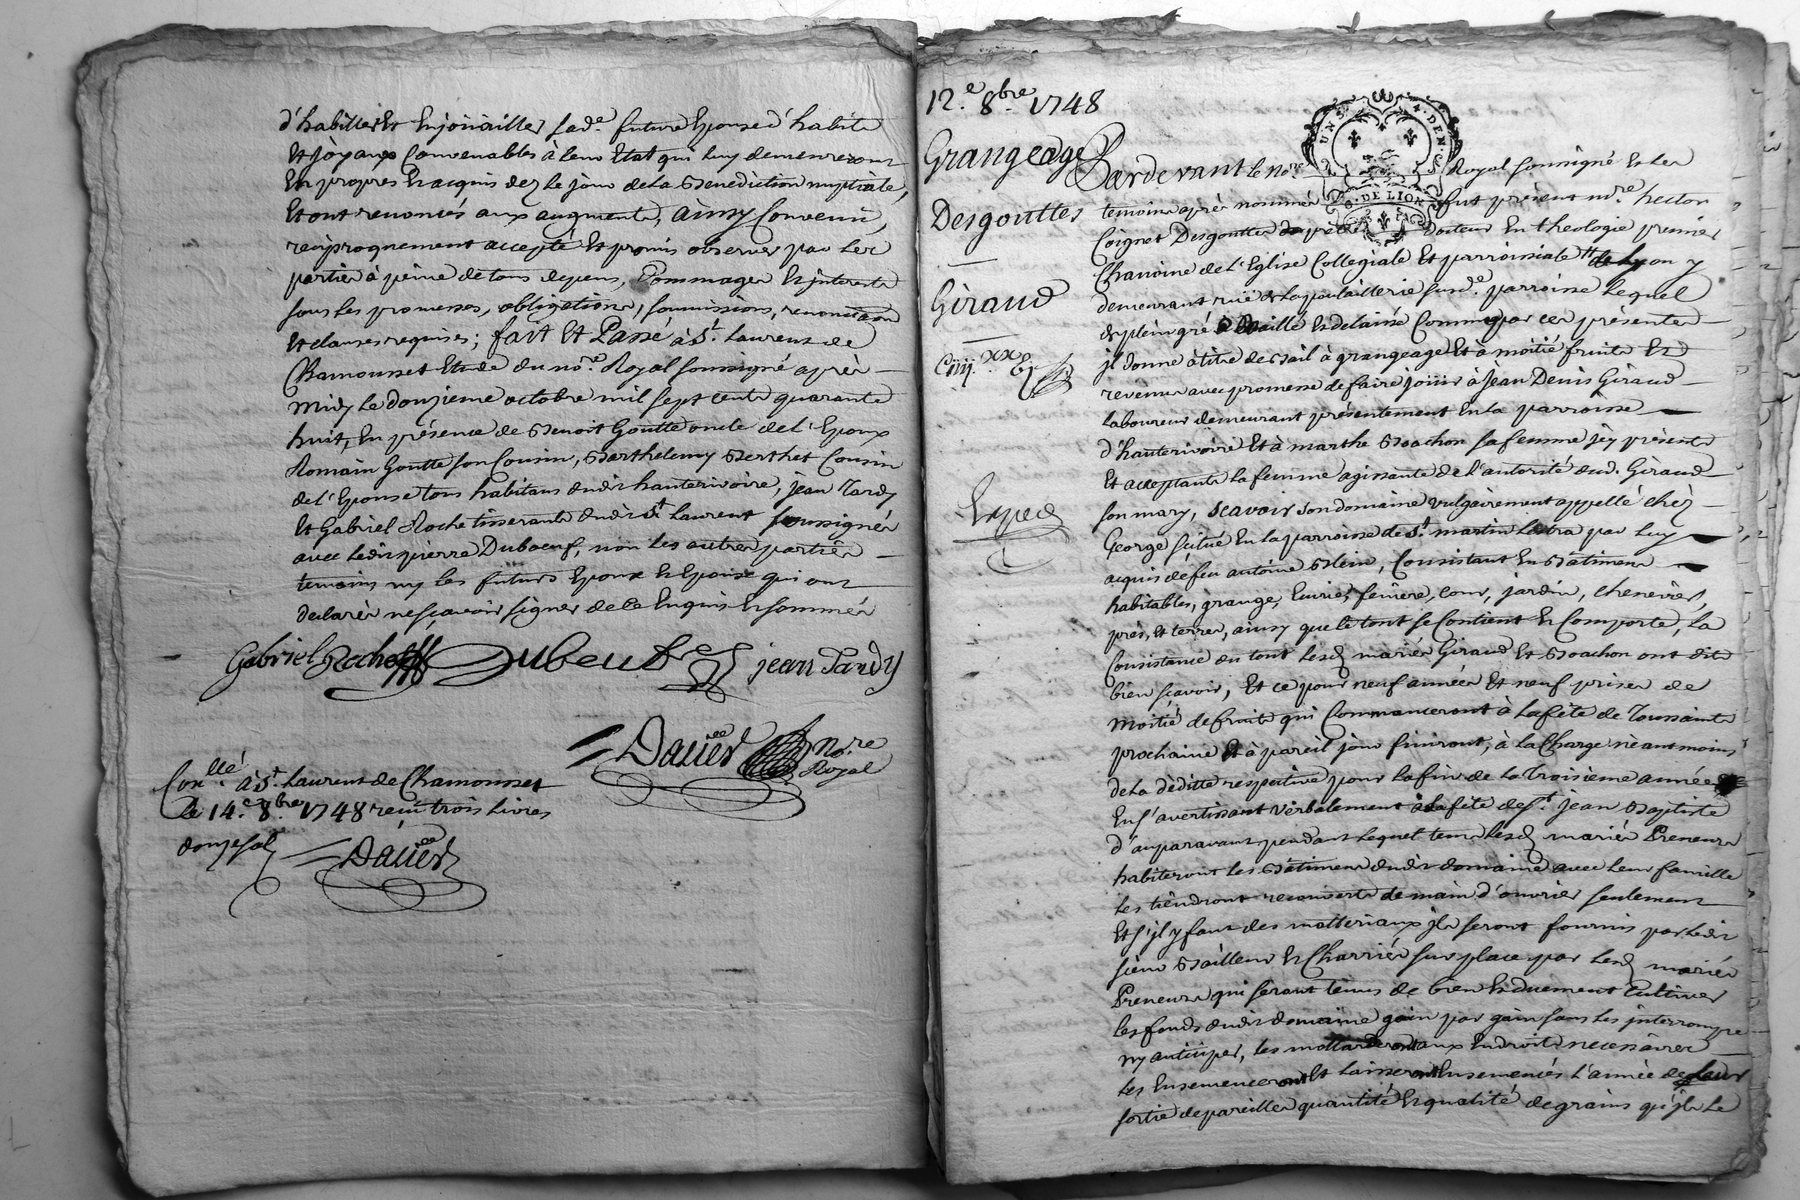 d'habiller et Enjoüailler sad.e future Epouse d'habits
Et Joyaux Convenables à leur Etat qui luy demeureront
En propres Et acquis dez le jour de la Benediction nuptiale,
Et ont renoncés aux augments, ainsy Convenu,
reciproquement accepté Et promis observer par les
parties à peine de tous depens, Dommages Et interests
sous les promesses, obligations, soumissions, renonciaôns
Et clauses requises; fait Et Passé à St. Laurent de
Chamousset Etude du no.re Royal soussigné après
Midy le douzieme octobre mil sept cents quarante
huit, En présence de Benoit Goutte oncle de l'Epoux
Romain Goutte son Cousin, Barthelemy Berthet Cousin
de l'Epouse tous habitans dudit hauterivoire, jean Tardy
Et Gabriel Roche tisserants dudit St Laurent soussignés
avec ledit pierre Duboeuf, non les autres parties
temoins ny les futurs Epoux Et Epouse qui ont
declarés ne sçavoir signer de ce Enquis Et sommés
Gabriel Roche Dubeuf jean Tardy
Daüer No.re
Royal
Con.llé à St. Laurent de Chamousset
Le 14.e 8.bre 1748 reçu trois Livres
douze sols
Daüer
12.e 8.bre 1748
Grangeage
Desgouttes
Giraud
Ciiij.xx
Expedié
UN S. N. DEN.
G. DE LION
Pardevant le no.re Royal soussigné Et les
temoins après nommés fut présent m.re hector
Coignet Desgouttes Docteur En theologie premier
Chanoine de l'Eglise Collegiale Et parroissiale de Lyon y
demeurant ruë de la poulaillerie susd.e parroisse Lequel
de plein gré a Baillé Et delaissé Comme par ces présentes
jl donne à titre de Bail à grangeage Et à moitié fruits Et
revenus avec promesse de faire joüir à Jean Denis Giraud
Laboureur demeurant présentement En la parroisse
d'hauterivoire Et à marthe Bachon sa femme jcy présents
Et acceptants la femme agissante de l'autorité dud. Giraud
son mary, Sçavoir son domaine vulgairement appellé chéz
George scitué En la parroisse de St. martin Lestra par luy
acquis de feu antoine Blein, Consistant En Batimens
habitables, grange, Ecurie, feniere, cour, jardin, chenevier,
prés, Et terres, ainsy que le tout se Contient Et Comporte, la
Consistance du tout Lesd. mariés Giraud Et Bachon ont dits
bien sçavoir, Et ce pour neuf années Et neuf prises de
moitié de fruits qui Commanceront à la fête de Toussaints
prochaine Et à pareil jour finiront, à la Charge néantmoins
de la dédite respective pour la fin de la troisieme année
En s'avertissant verbalement à la fête de St. jean Baptiste
d'auparavant, pendant lequel tems Lesd. mariés Preneurs
habiteront les Batimens dudit domaine avec leur famille
les tiendront recouverts de main d'ouvrier seulement
Et s'jl y faut des matteriaux jls seront fournis par ledit
sieur Bailleur Et Charriés sur place par Lesd. mariés
Preneurs qui seront tenus de bien Et duement Cultiver
les fonds dudit domaine gain par gain sans les jnterrompre
ny anticiper, les mottarderont aux Endroits necessaires
les Ensemenceront Et laisseront Ensemencés l'année de leur
sortie de pareilles quantité Et qualité de grains qu'jls le